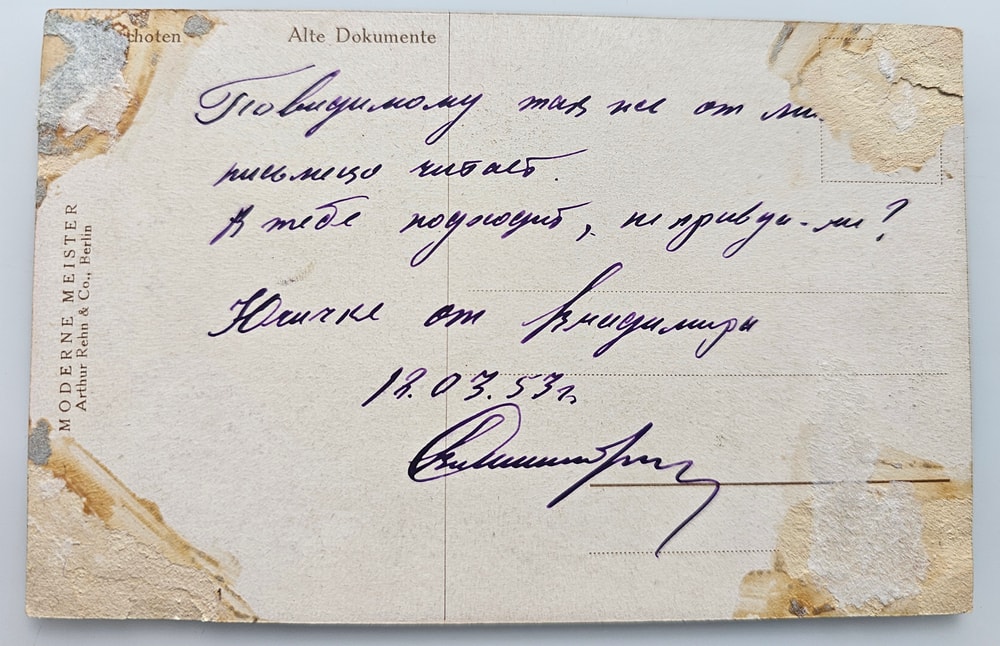 thoten Alte Dokumente
Повидимому так же от ми
письмецо читает.
А тебе подходит, не правда-ли?
Юличке от Владимира
12.03.53г.
MODERNE MEISTER
Arthur Rehn & Co., Berlin